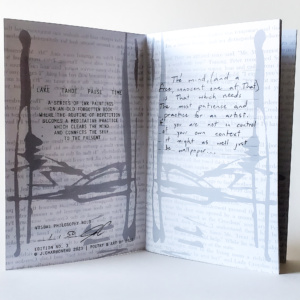 TAKE THOSE PAUSE TIME
A SERIES OF INK PAINTINGS
IN AN OLD FORGOTTEN BOOK
WHERE THE ROUTINE OF REPETITION
BECOMES A MEDITATIVE PRACTICE
WHICH CLEARS THE MIND
AND CONNECTS THE SELF
TO THE PRESENT
PHILOSOPHY NO.
EDITION NO.
2023 | POETRY & ART
The mind, (and a
free, innocent one at that)
is that which needs
the most patience and
practice for an artist.
If you are not in control
of your own context
it might as well just
be wallpaper...